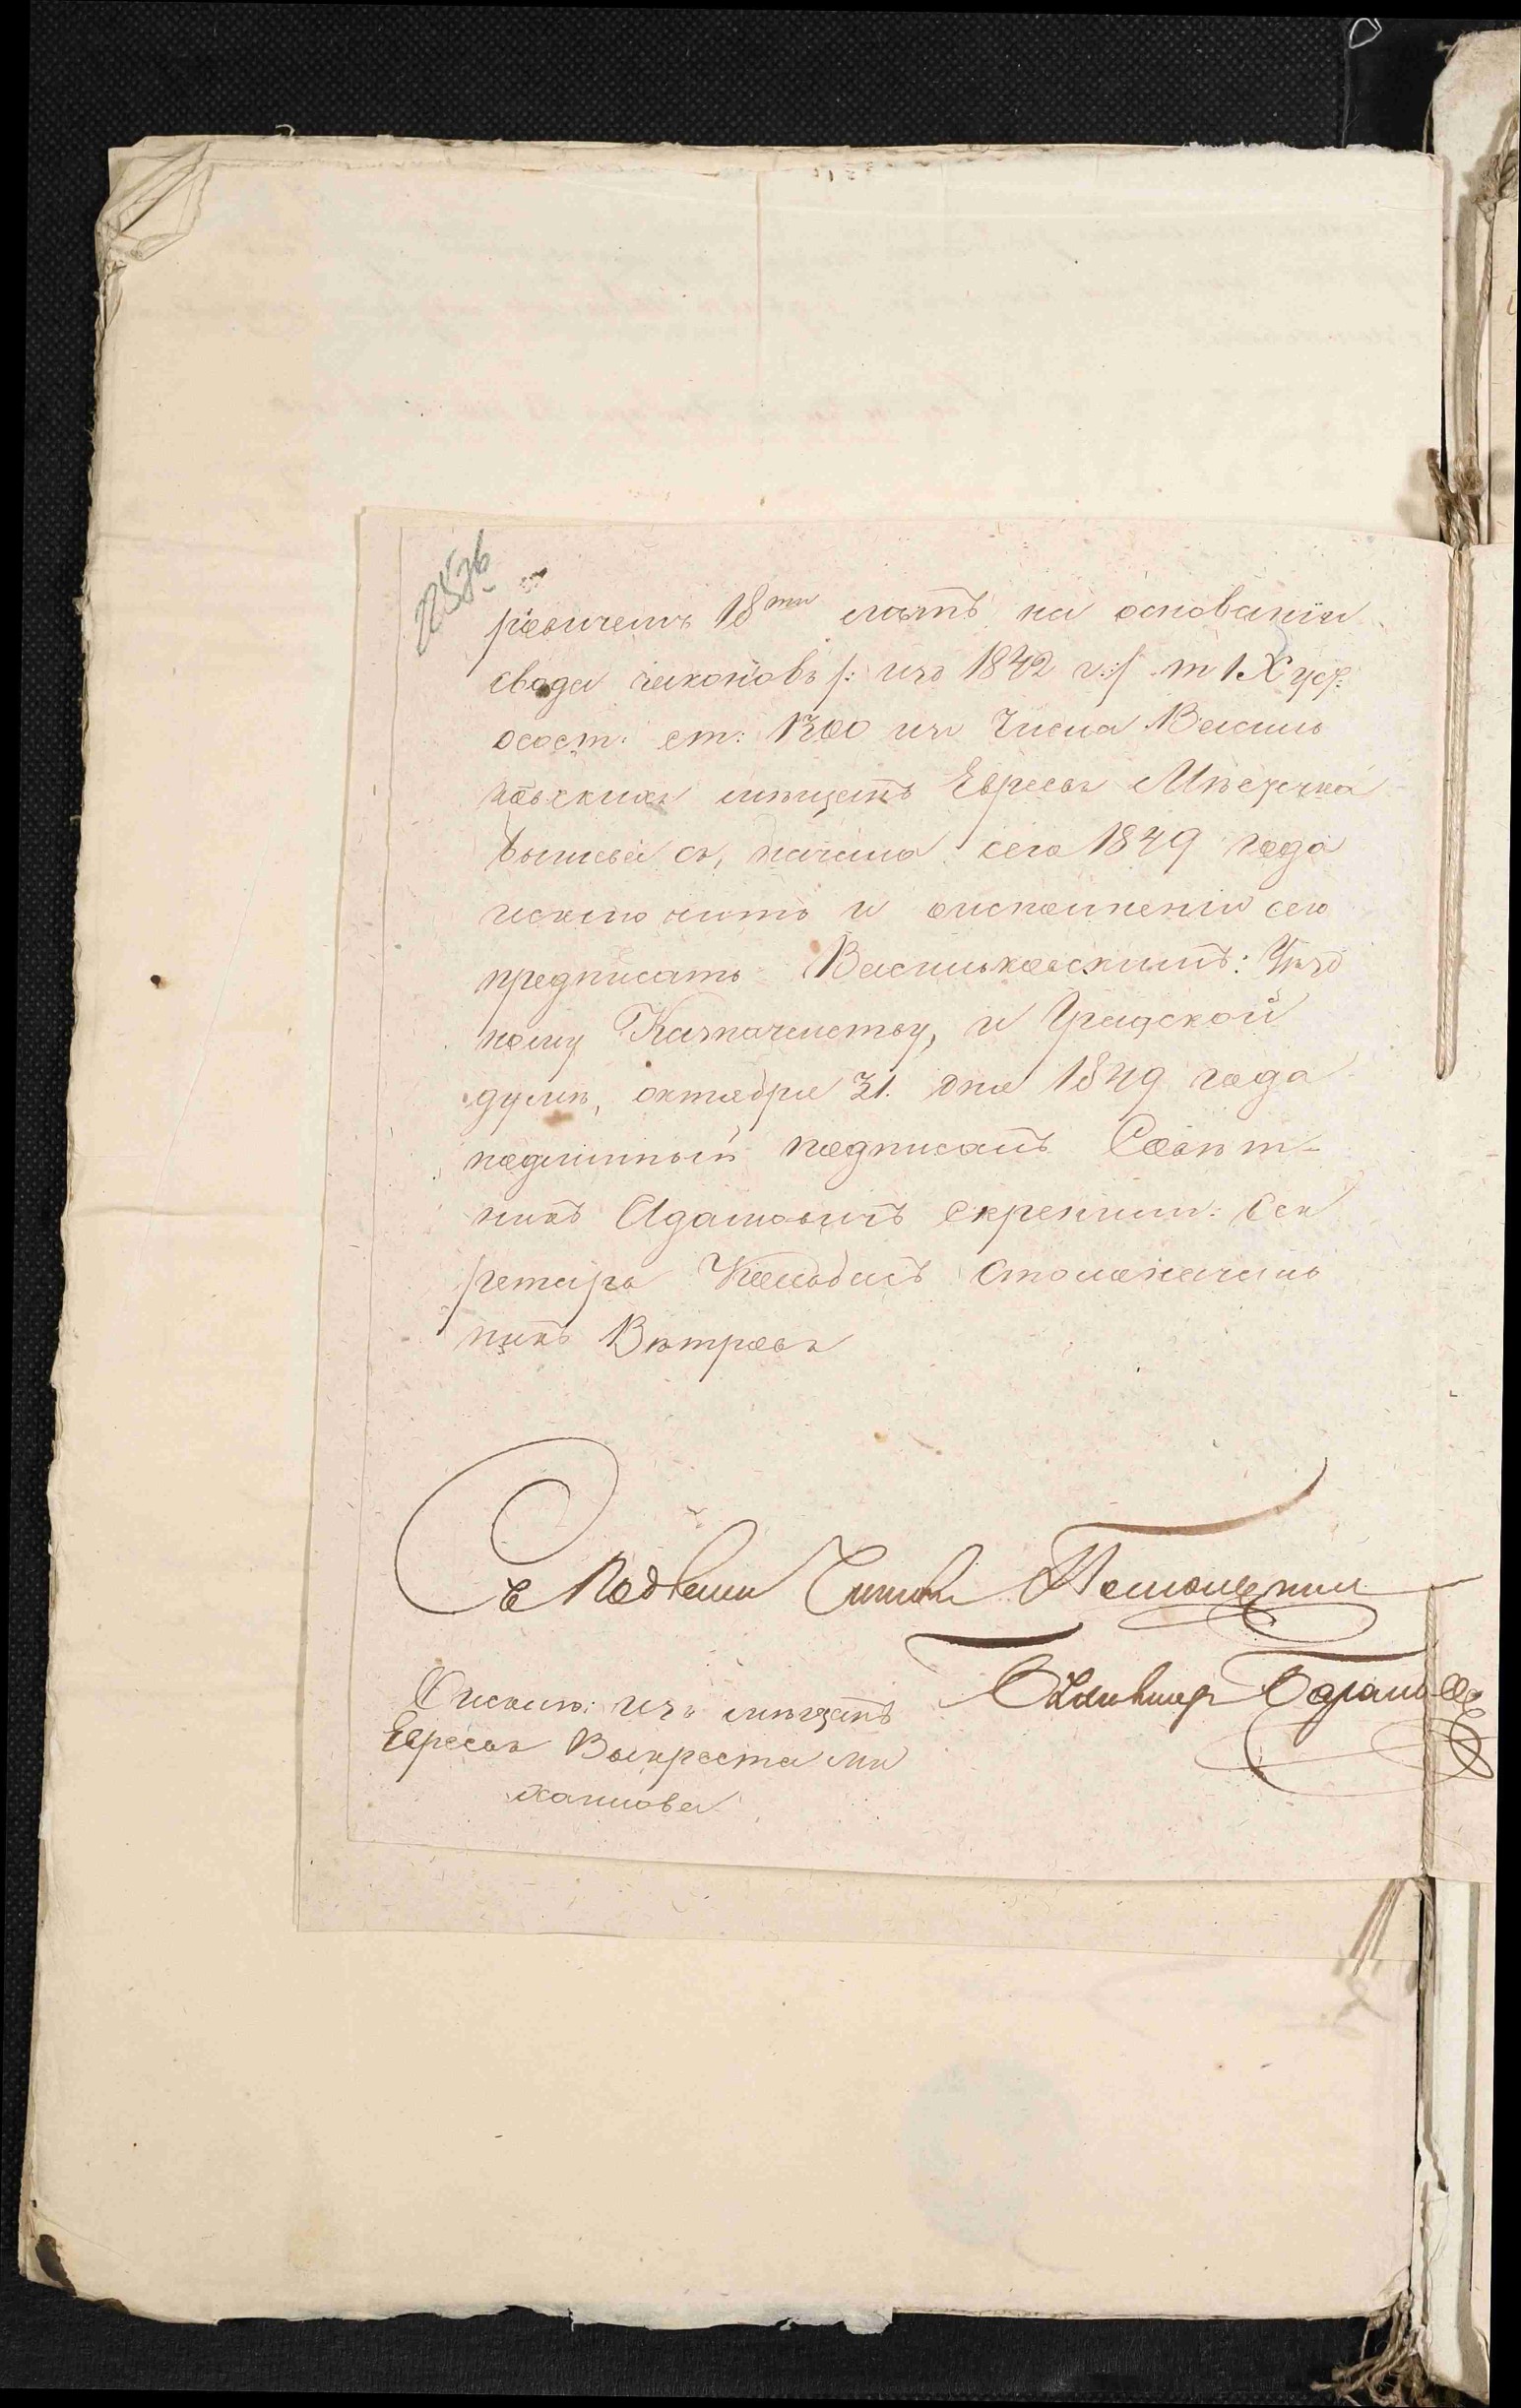 ровичемъ 18ти лѣтъ на основаніи
свода законовъ /: изд 1842 г:/ т IX
осост: ст: 1300 изъ числа Василь
ковскихъ мѣщанъ Евреевъ Мѣстечка
съ, начала сего 1849 года
исключить и оисполненіи сего
предписать Васильковскимъ: Уѣзд
ному Казначейству, и Градской
думѣ, октября 31. дня 1849 года
подлинный подписалъ Совѣт-
никъ Адамовичъ скрепилъ: Сек
ретарь Столоначаль
никъ Вѣтровъ
Съ Подлин
Оисклю: изъ мѣщанъ
Евреевъ Выкреста Ми
хайлова